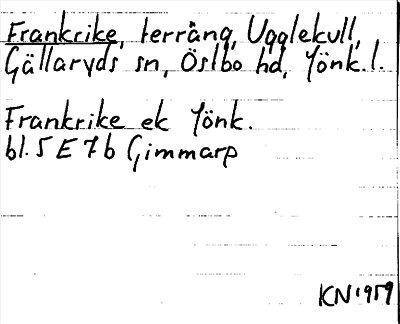 Frankrike, terräng, Ugglekull,
Gällaryds sn, Östbo hd, Jönk. l.
Frankrike ek Jönk.
bl. 5 E 7 b Gimmarp
KN 1959